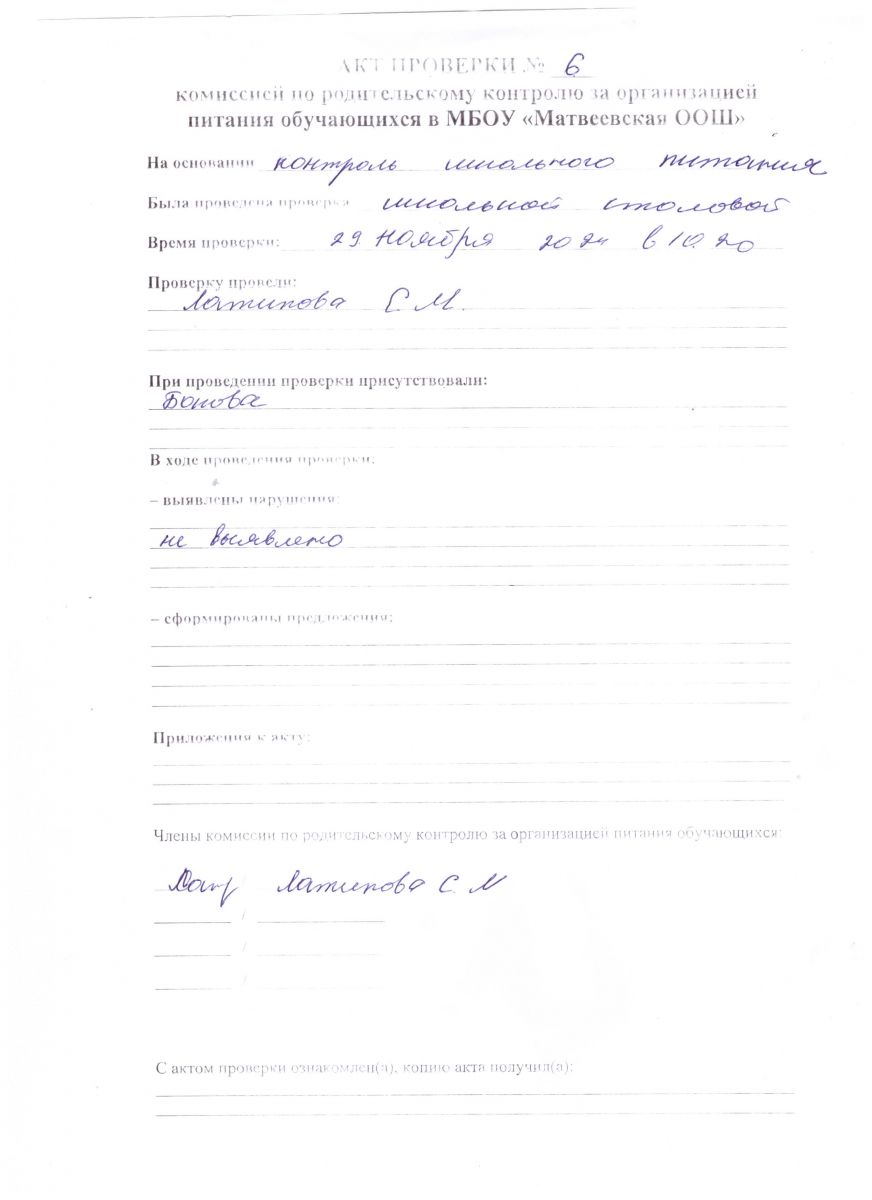 АКТ ПРОВЕРКИ № 6
комиссией по родительскому контролю за организацией
питания обучающихся в МБОУ «Матвеевская ООШ»
На основании контроль школьного питания
Была проведена проверка школьной столовой
Время проверки: 29 ноября 2024 в 10.20
Проверку провели:
Латипова С.М.
При проведении проверки присутствовали:
В ходе проведения проверки:
– выявлены нарушения:
не выявлено
– сформированы предложения:
Приложения к акту:
Члены комиссии по родительскому контролю за организацией питания обучающихся:
/ Латипова С. М
/
/
/
С актом проверки ознакомлен(а), копию акта получил(а):